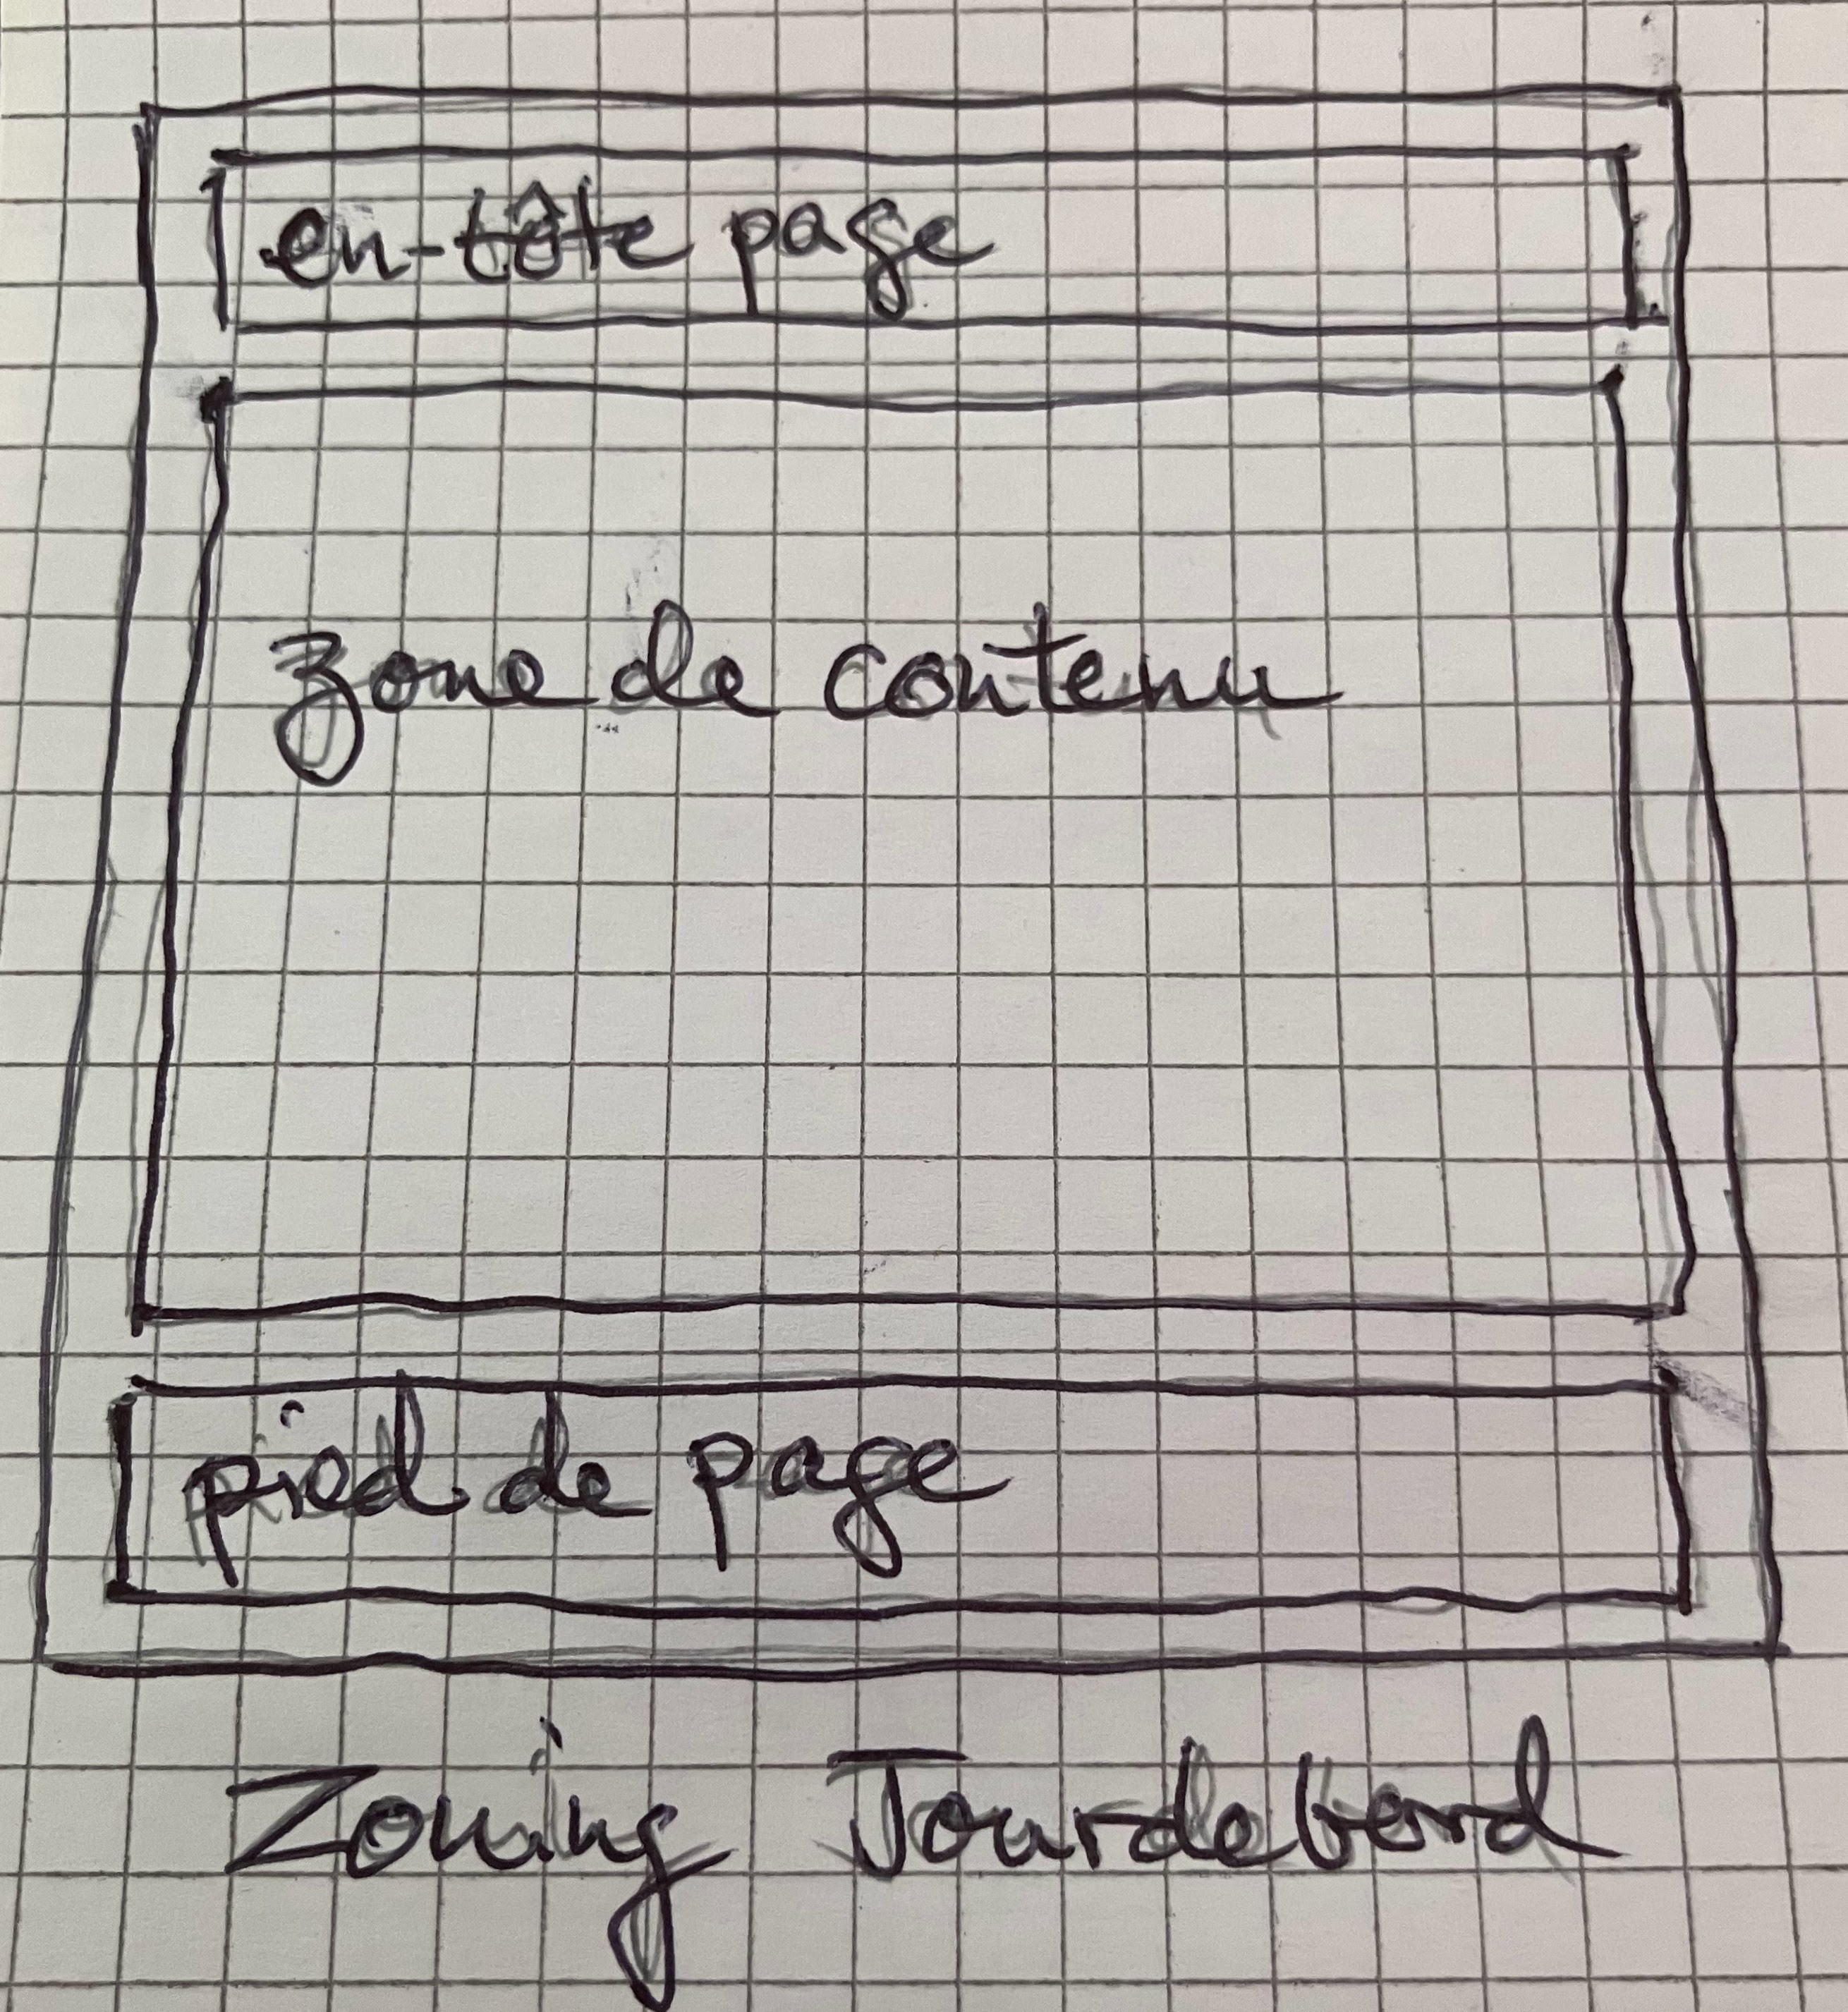 en-tête page
zone de contenu
pied de page
Zoning Jourdebord